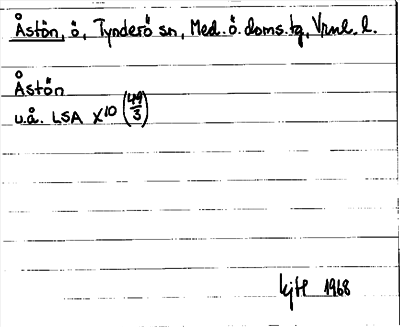 Åstön, ö, Tynderö sn, Med. ö. doms. tg, Vrnl. l.
Åstön
u.å. LSA X10 (49/3)
1968